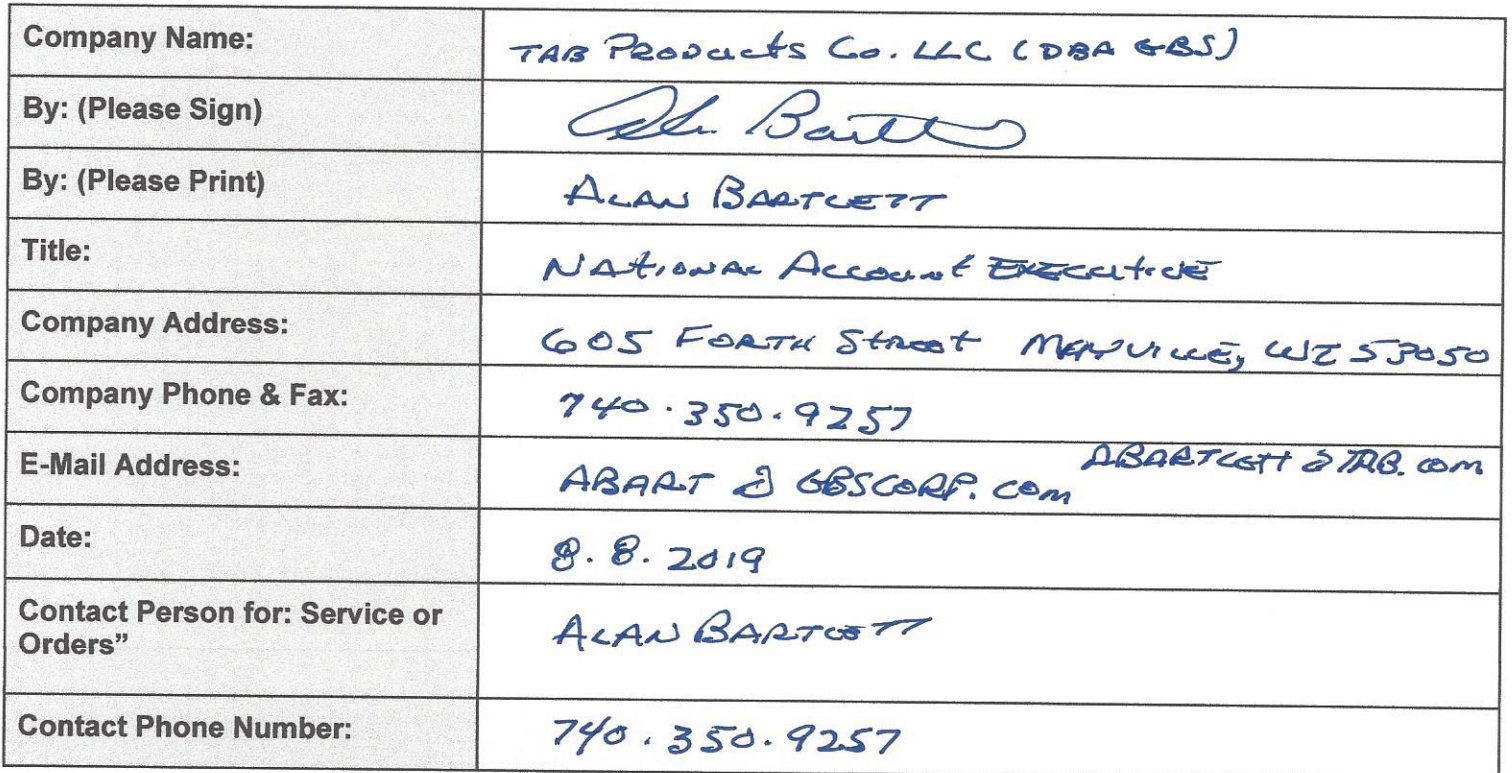 Company Name: TAB Products Co. LLC (DBA GBS)
By: (Please Sign) Alan Bartlett
By: (Please Print) ALAN BARTLETT
Title: National Account Executive
Company Address: 605 FORTH Street MAYVILLE, WI 53050
Company Phone & Fax: 740.350.9257
E-Mail Address: ABART @ GBSCORP.com ABARTLETT @ TAB.com
Date: 8.8.2019
Contact Person for: Service or
Orders” ALAN BARTLETT
Contact Phone Number: 740.350.9257